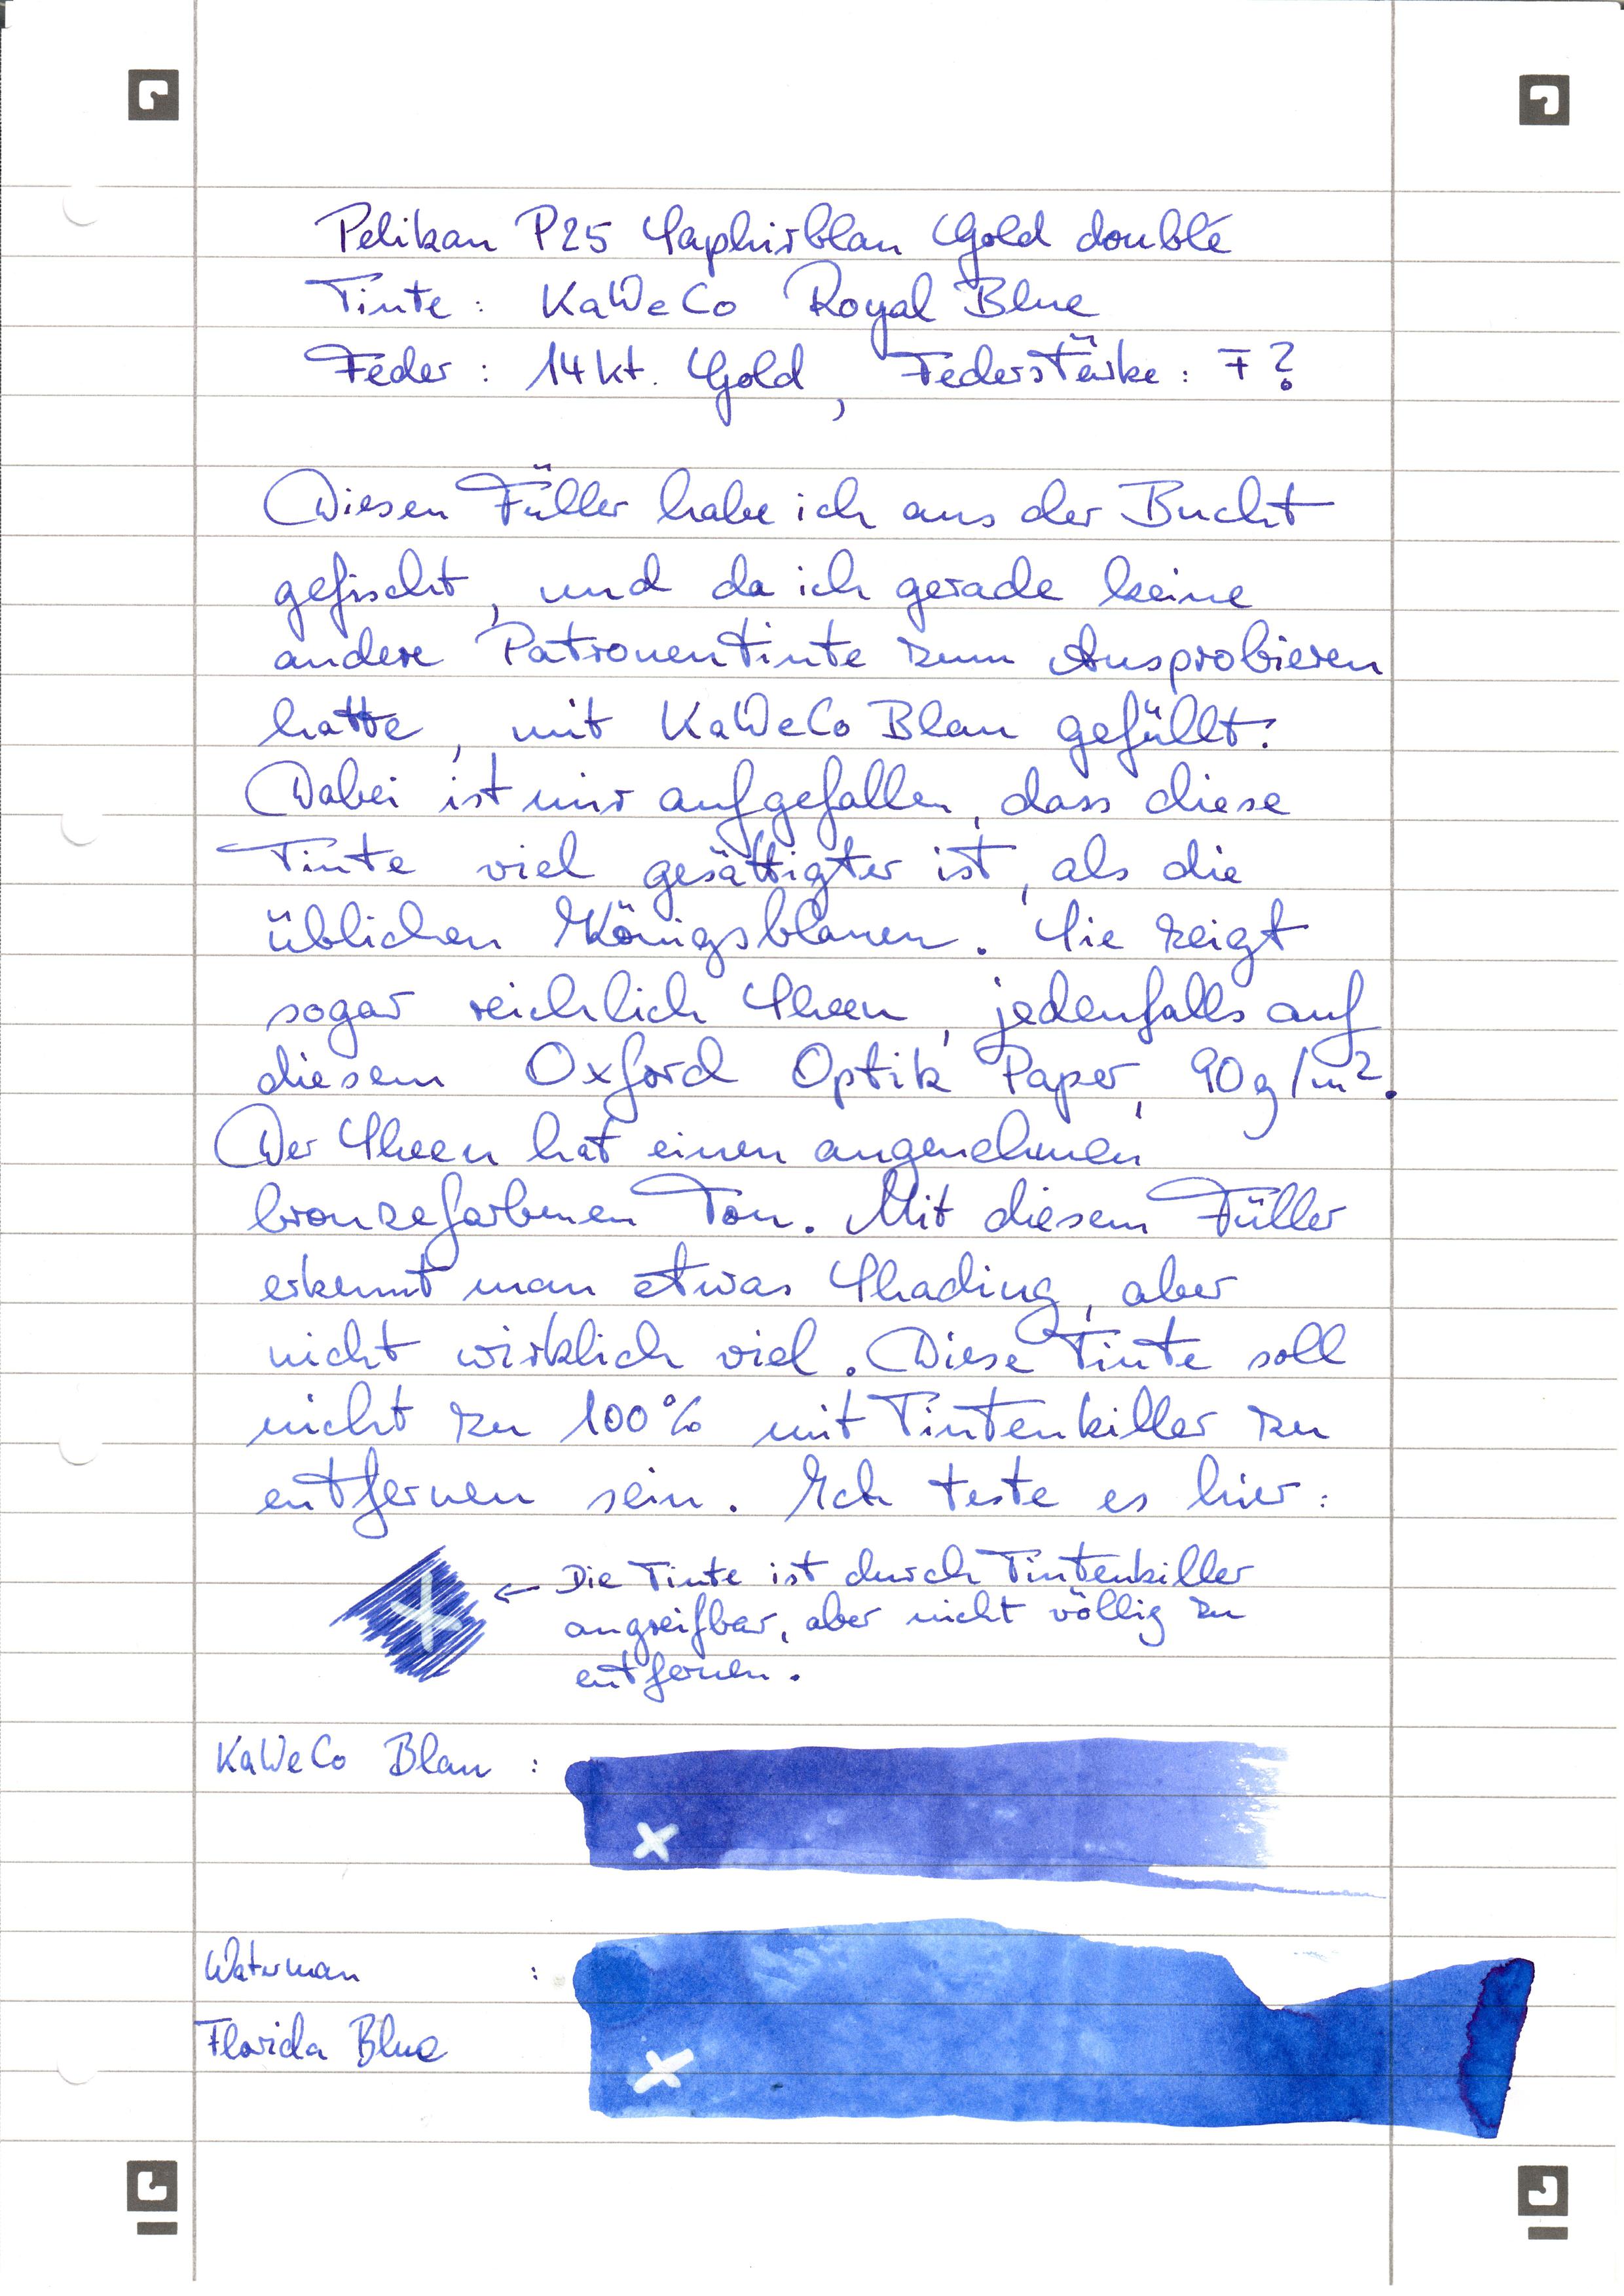 Pelikan P25 Saphirblau Gold doublé
Tinte: KaWeCo Royal Blue
Feder: 14 kt. Gold, Federstärke: F?
Diesen Füller habe ich aus der Bucht
gefischt, und da ich gerade keine
andere Patronentinte zum Ausprobieren
hatte, mit KaWeCo Blau gefüllt.
Dabei ist mir aufgefallen, dass diese
Tinte viel gesättigter ist, als die
üblichen Königsblauen. Sie zeigt
sogar reichlich Sheen, jedenfalls auf
diesem Oxford Optik Paper, 90g/m².
Der Sheen hat einen angenehmen
bronzefarbenen Ton. Mit diesem Füller
erkennt man etwas Shading, aber
nicht wirklich viel. Diese Tinte soll
nicht zu 100% mit Tintenkiller zu
entfernen sein. Ich teste es hier:
← Die Tinte ist durch Tintenkiller
angreifbar, aber nicht völlig zu
entfernen.
KaWeCo Blau :
Waterman :
Florida Blue